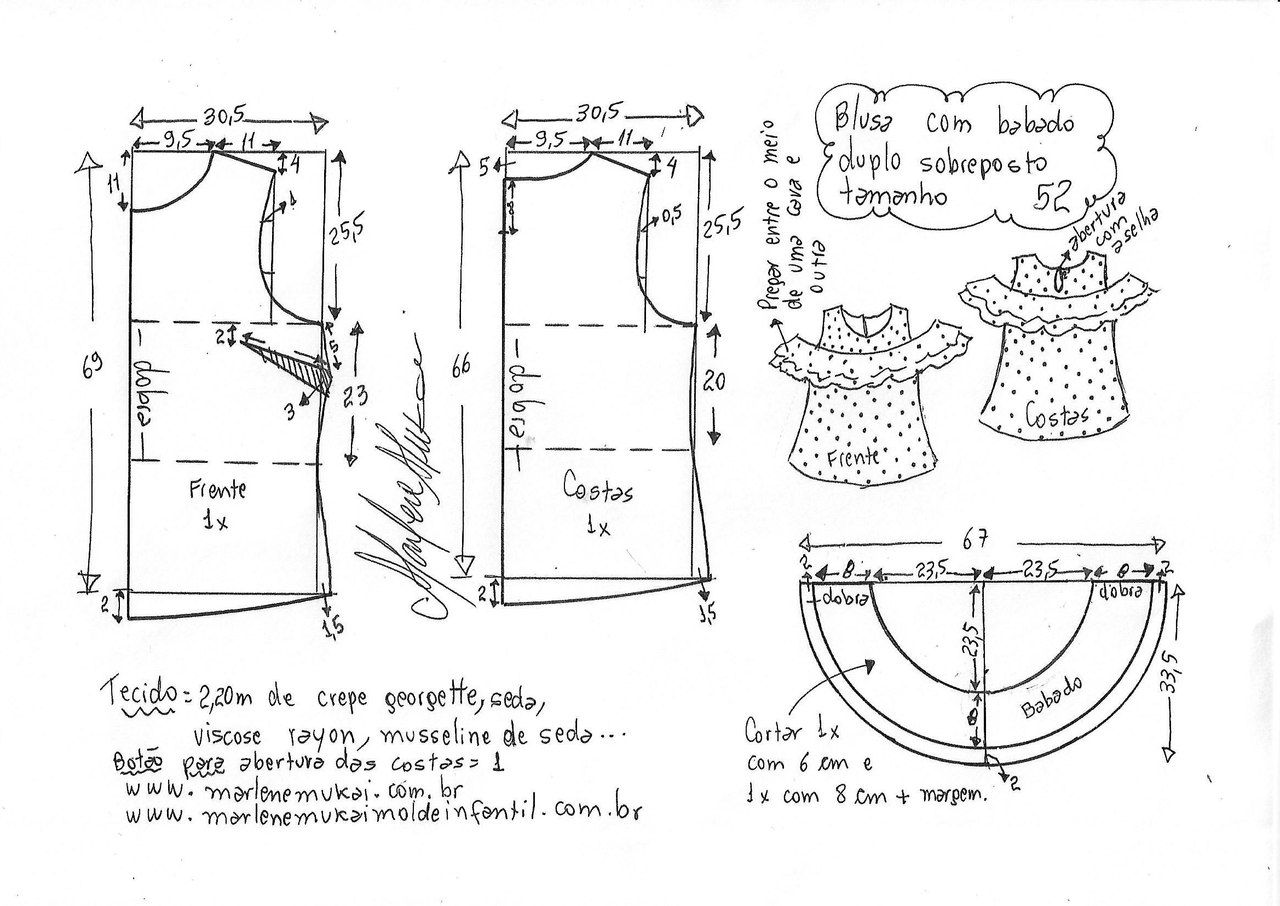 30,5
9,5
11
4
11
1
25,5
69
2
5
3
23
dobra
Frente
1x
2
1,5
30,5
9,5
11
4
5
8
0,5
25,5
66
dobra
20
Costas
1x
2
1,5
Blusa com babado
duplo sobreposto
tamanho 52
Prepar entre o meio
de uma cava e
outra
abertura
com
aselha
Frente
Costas
67
2
8
23,5
23,5
8
2
dobra
dobra
23,5
8
33,5
Babado
2
Cortar 1x
com 6 cm e
1x com 8 cm + margem.
Tecido = 2,20m de crepe georgette, seda,
viscose rayon, musseline de seda...
Botão para abertura das costas = 1
www.marlenemukai.com.br
www.marlenemukaimoldeinfantil.com.br